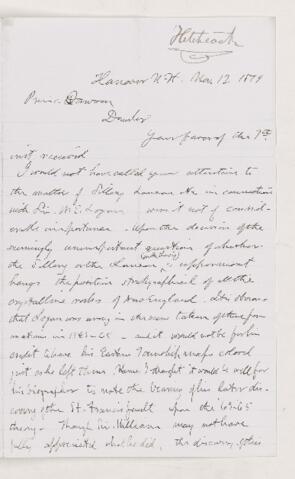 Hitchcock
Hanover N.H. Nov. 12 1879
Princ. Dawson
Dear Sir
Your favor of the 7th
inst. received
I would not have called your attention to
the matter of Sillery Lauzon &c in connection
with Sir W. E. Logan were it not of consid-
erable importance. Upon the decision of the
seemingly unimportant question of whether
the Sillery or the Lauzon is uppermost
hangs the position stratigraphical of all the
crystalline rocks of New England. It is obvious
that Logan was wrong in views taken of these for-
mations in 1863-65 - and it would not be for his
credit to leave his Eastern Township maps colored
just as he left them. Hence I thought it would be well for
his biographer to note the bearing of his later dis-
covery of the St. Francis fault upon the 1863-65
theory - Though Sir William may not have
fully appreciated what he did, the discovery of this